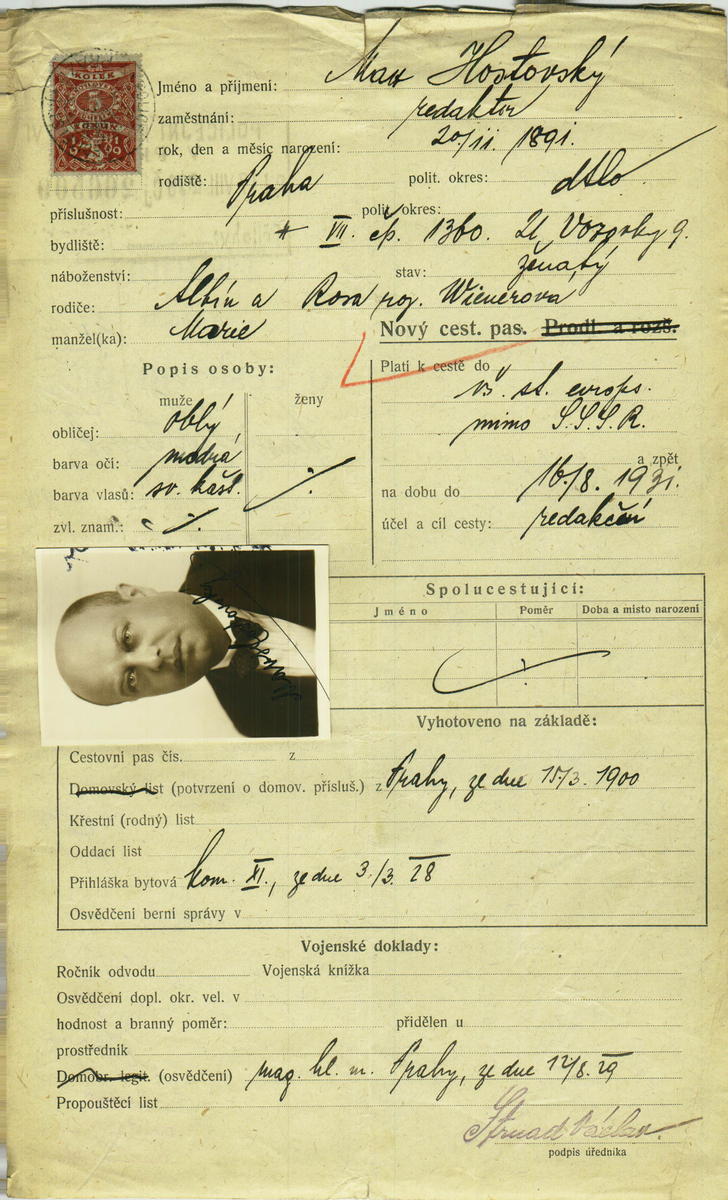 KOLEK
5
Jméno a příjmení: Max Hostovský
zaměstnání: redaktor
rok, den a měsíc narození: 20/11. 1891.
rodiště: Praha polit. okres: dtto
příslušnost: polit. okres:
bydliště: VII. čp. 1360. U Vorařky 9.
náboženství: stav: ženatý
rodiče: Albín a Rosa roz. Wienerová
manžel(ka): Marie
Nový cest. pas. Prodl. a rozš.
Popis osoby:
muže ženy
obličej: oblý
barva očí: modrá
barva vlasů: sv. kašt.
zvl. znam.:
Platí k cestě do vš. st. evrops.
mimo S.S.S.R.
a zpět
na dobu do 16/8. 1931.
účel a cíl cesty: redakční
Spolucestující:
Jméno Poměr Doba a místo narození
Vyhotoveno na základě:
Cestovní pas čís. z
Domovský list (potvrzení o domov. přísluš.) z Prahy, ze dne 15/3. 1900
Křestní (rodný) list
Oddací list
Přihláška bytová kom. XI., ze dne 3./3. 28
Osvědčení berní správy v
Vojenské doklady:
Ročník odvodu Vojenská knížka
Osvědčení dopl. okr. vel. v
hodnost a branný poměr: přidělen u
prostředník
Domobr. legit. (osvědčení) mag. hl. m. Prahy, ze dne 12/8. 29
Propouštěcí list
Strnad Václav
podpis úředníka